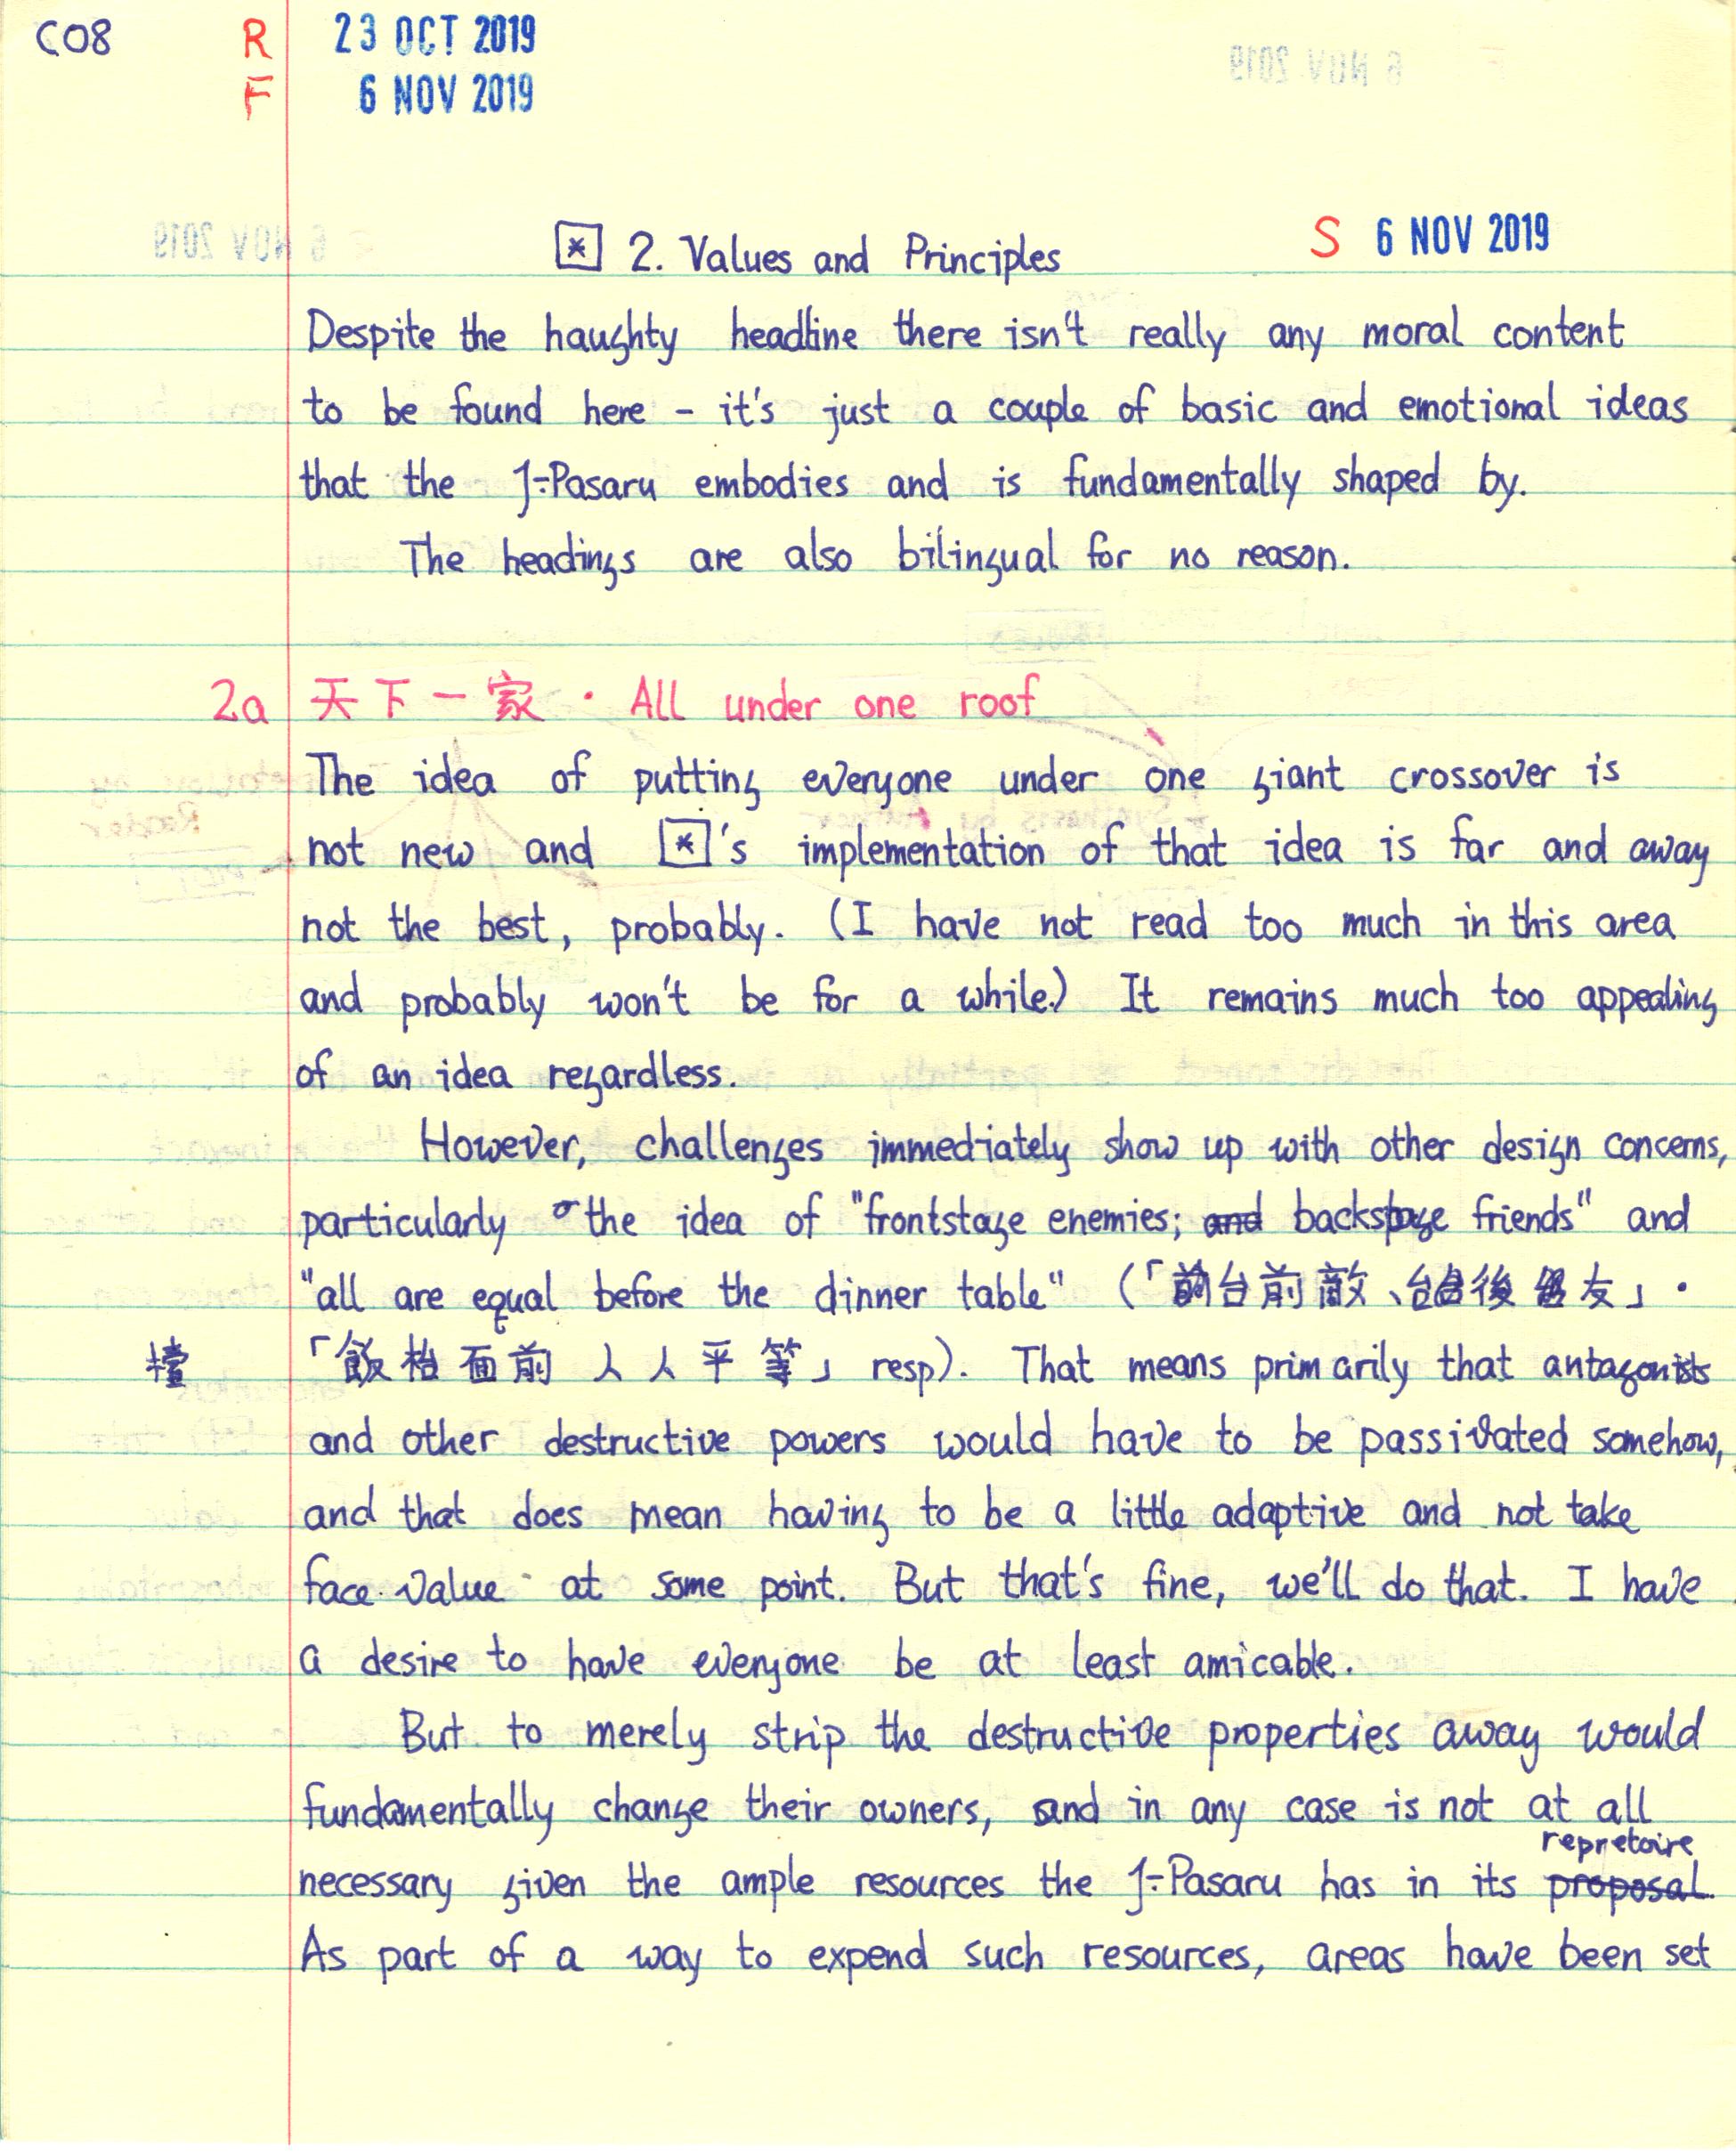 C08 R 23 OCT 2019
F 6 NOV 2019
[*] 2. Values and Principles S 6 NOV 2019
Despite the haughty headline there isn't really any moral content
to be found here - it's just a couple of basic and emotional ideas
that the J-Pasaru embodies and is fundamentally shaped by.
The headings are also bilingual for no reason.
2a 天下一家 · All under one roof
The idea of putting everyone under one giant crossover is
not new and [*]'s implementation of that idea is far and away
not the best, probably. (I have not read too much in this area
and probably won't be for a while.) It remains much too appealing
of an idea regardless.
However, challenges immediately show up with other design concerns,
particularly the idea of "frontstage enemies; and backstage friends" and
"all are equal before the dinner table" (「台前敵、台後友」·
檯 「飯枱面前人人平等」 resp). That means primarily that antagonists
and other destructive powers would have to be passivated somehow,
and that does mean having to be a little adaptive and not take
face value at some point. But that's fine, we'll do that. I have
a desire to have everyone be at least amicable.
But to merely strip the destructive properties away would
fundamentally change their owners, and in any case is not at all
repretoire
necessary given the ample resources the J-Pasaru has in its proposal.
As part of a way to expend such resources, areas have been set